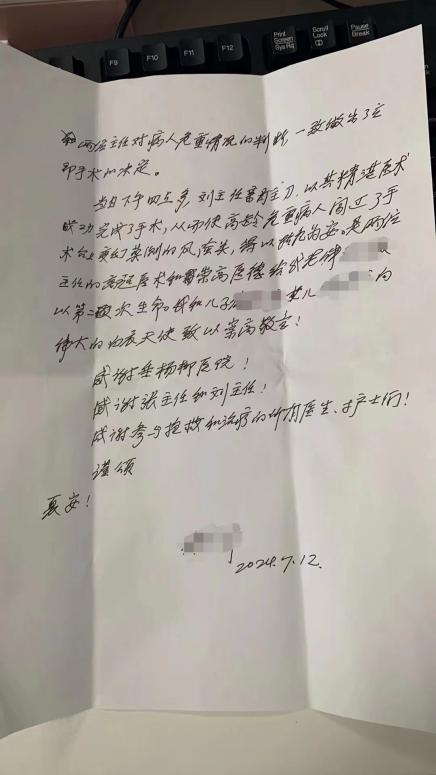 F9 F10 F11 F12 Print Screen SysRq Scroll Lock Pause Break
两位主任对病人危重情况的判断,一致做出了立
即手术的决定。
当日下午四点多,刘主任亲自主刀,以其精湛医术
成功完成了手术,从而使高龄危重病人闯过了手
术台上变幻莫测的风险关,得以转危为安。是两位
主任的高超医术和崇高医德给我老伴
以第二次生命。我和儿子 女儿 向
伟大的白衣天使致以崇高敬意!
感谢垂杨柳医院!
感谢张主任和刘主任!
感谢参与抢救和治疗的所有医生、护士们!
谨颂
夏安!
2024.7.12.